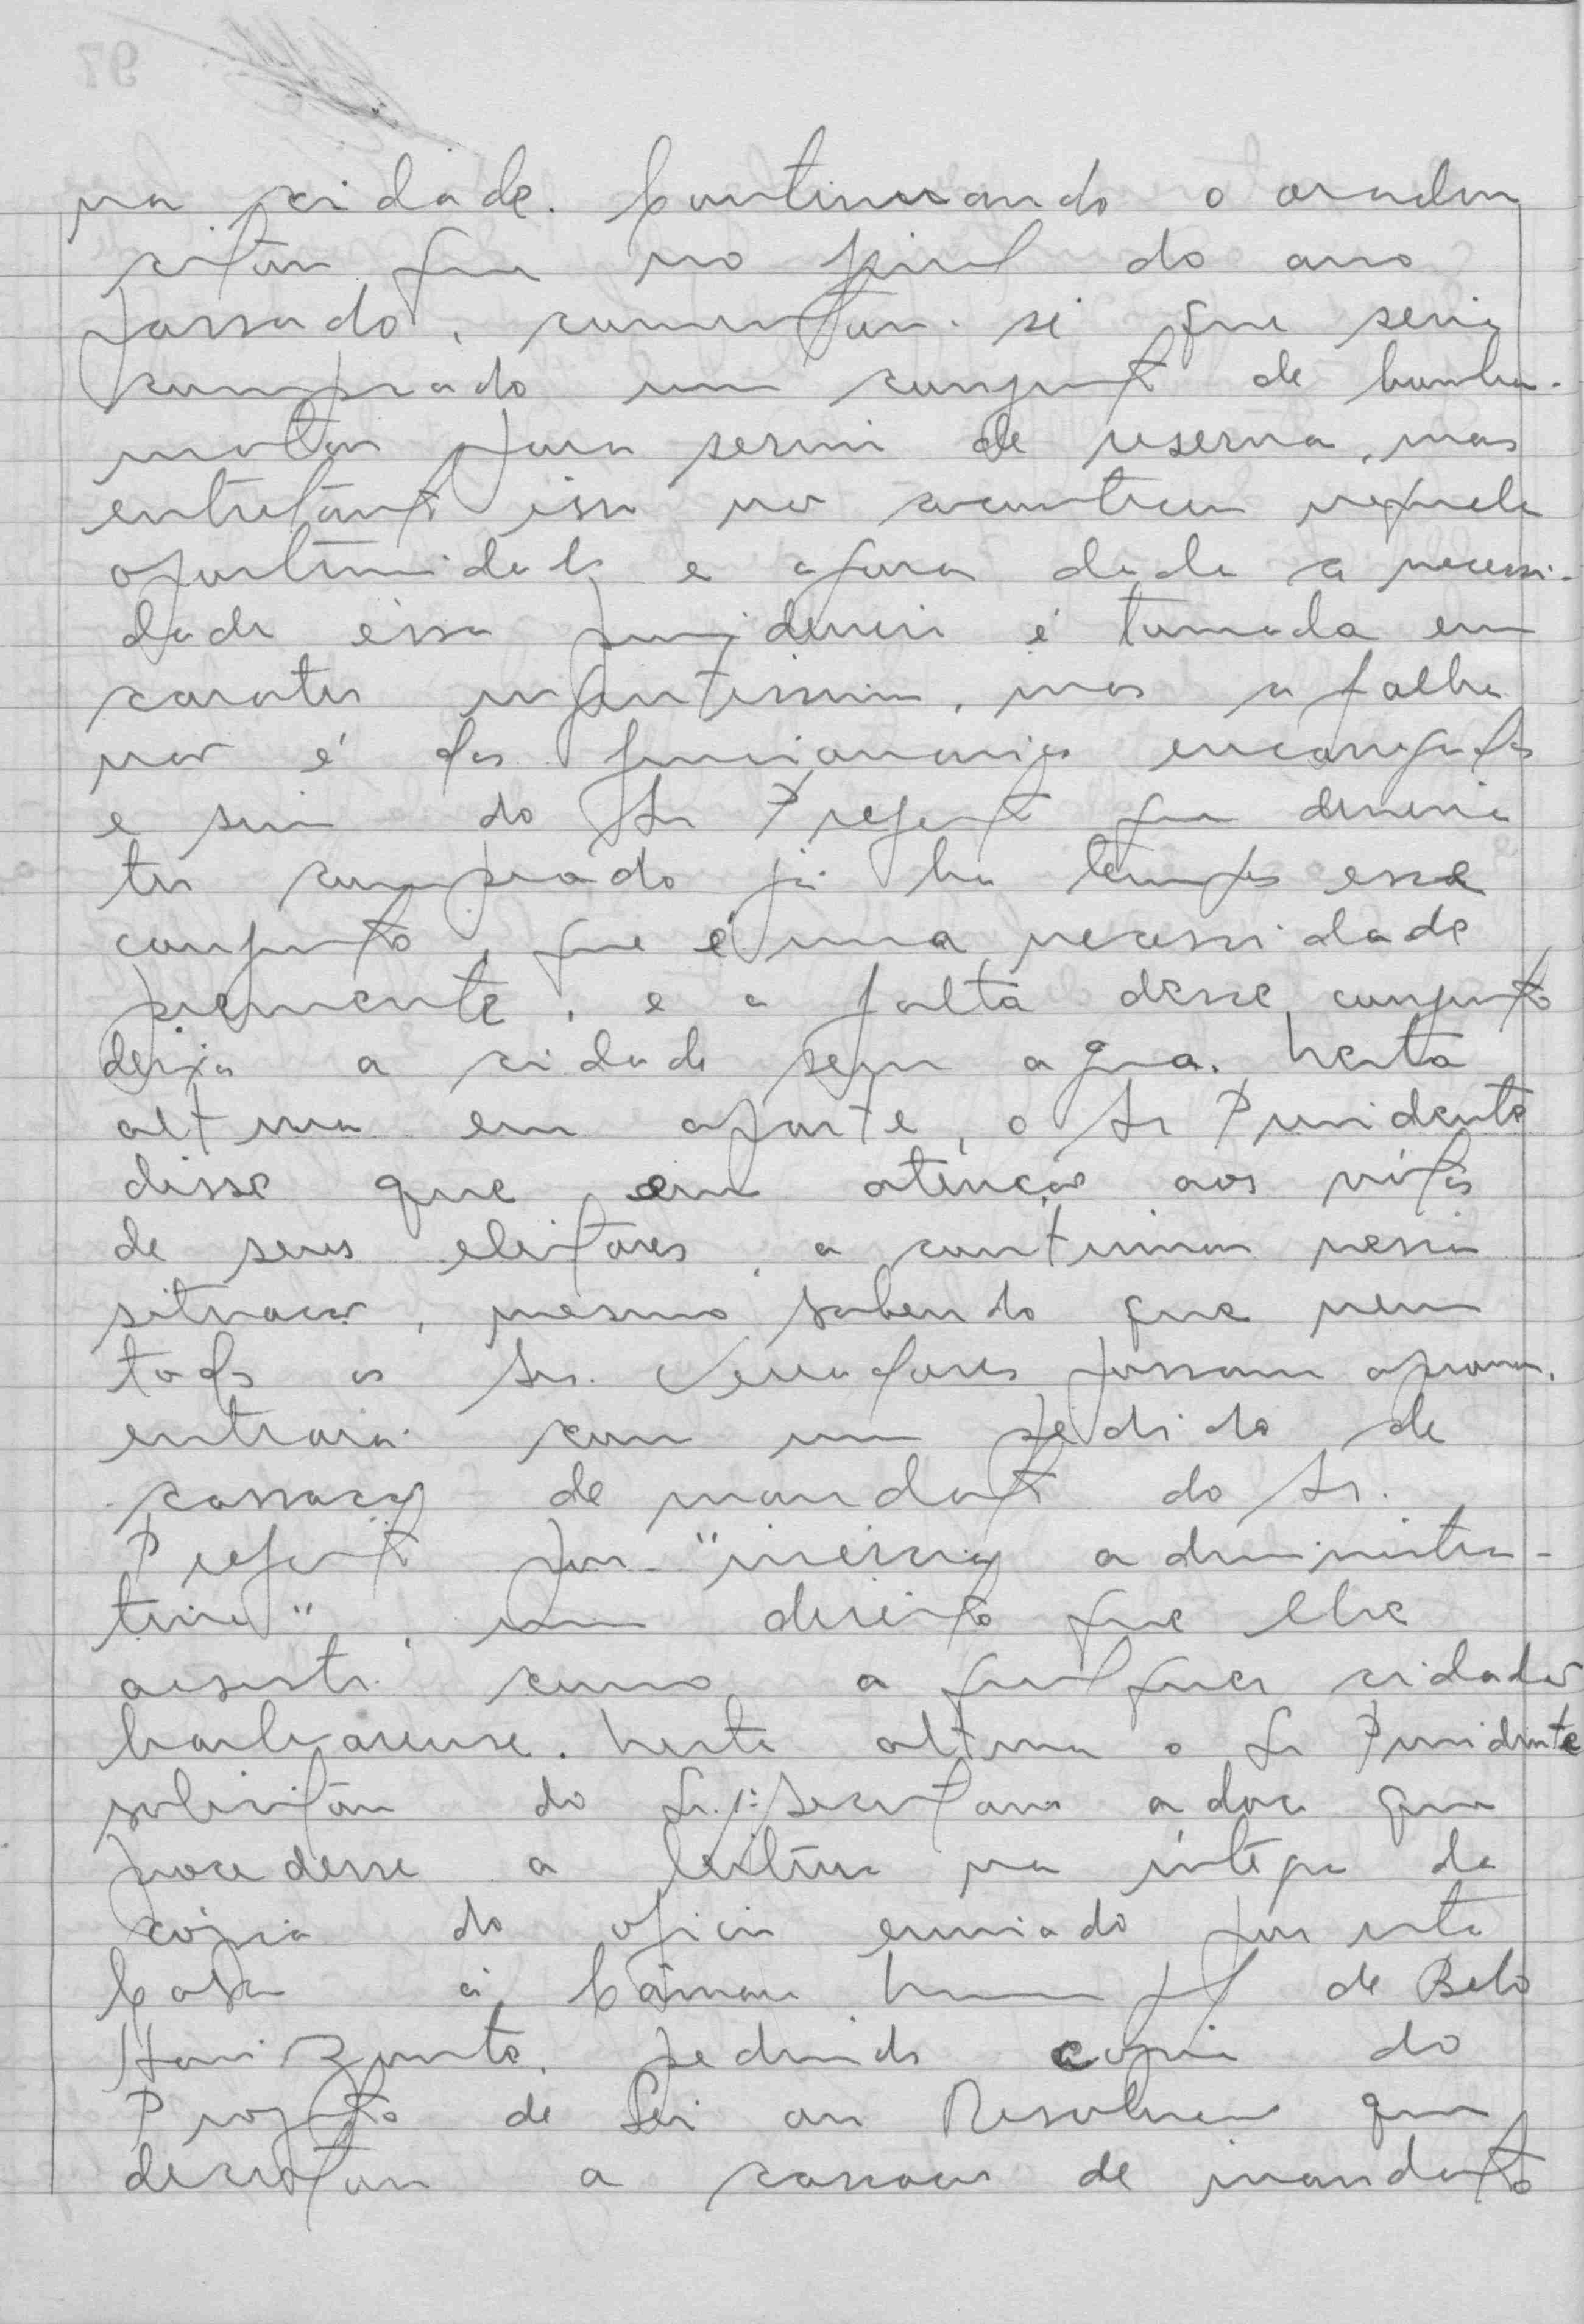 na cidade. Continuando o orador
citou que no final do ano
passado, comentou-se que seria
comprado um conjunto de bomba-
motor para servir de reserva, mas
entretanto isso não aconteceu naquela
oportunidade e agora dada a necessi-
dade essa providencia é tomada em
carater urgentissimo, mas a falha
não é dos funcionarios encarregados
e sim do Sr Prefeito que deveria
ter comprado já ha tempos esse
conjunto, que é uma necessidade
premente, e a falta desse conjunto
deixa a cidade sem agua. Nesta
altura em aparte, o Sr Presidente
disse que em atenção aos votos
de seus eleitores, a continuar nessa
situação, mesmo sabendo que nem
todos os Srs. Vereadores possam aprovar,
entrará com um pedido de
cassação de mandato do Sr.
Prefeito por "inércia administra-
tiva", um direito que lhe
assiste como a qualquer cidadão
barbarense. Nesta altura o Sr Presidente
solicitou do Sr. 1º Secretario adoc que
procedesse a leitura na íntegra da
cópia do oficio enviado por esta
Casa á Câmara Municipal de Belo
Horizonte, pedindo copia do
Projeto de Lei ou Resolução que
decretou a cassação de mandato